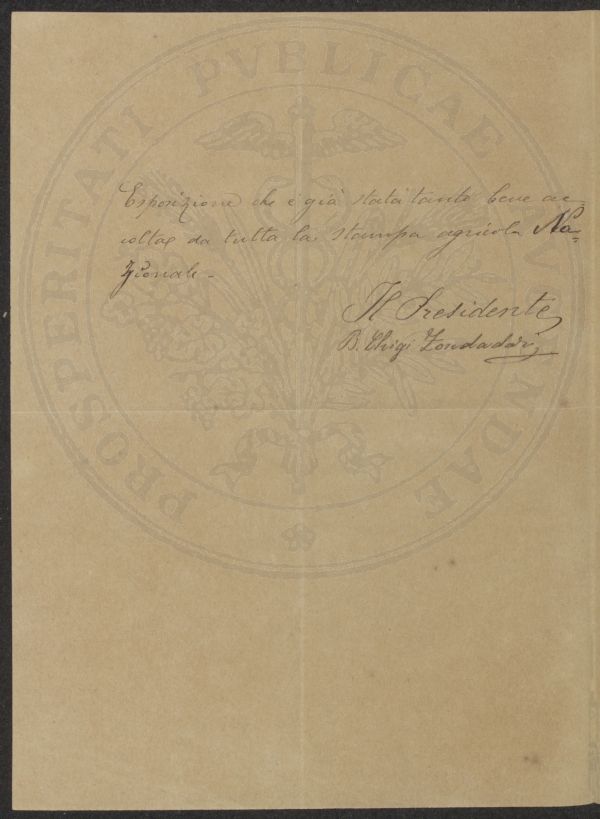 PROSPERITATI PVBLICAE
Esposizione che è già stata tanto bene ac-
colta da tutta la stampa agricola Na=
zionale -
Il Presidente
B. Chigi Zondadari